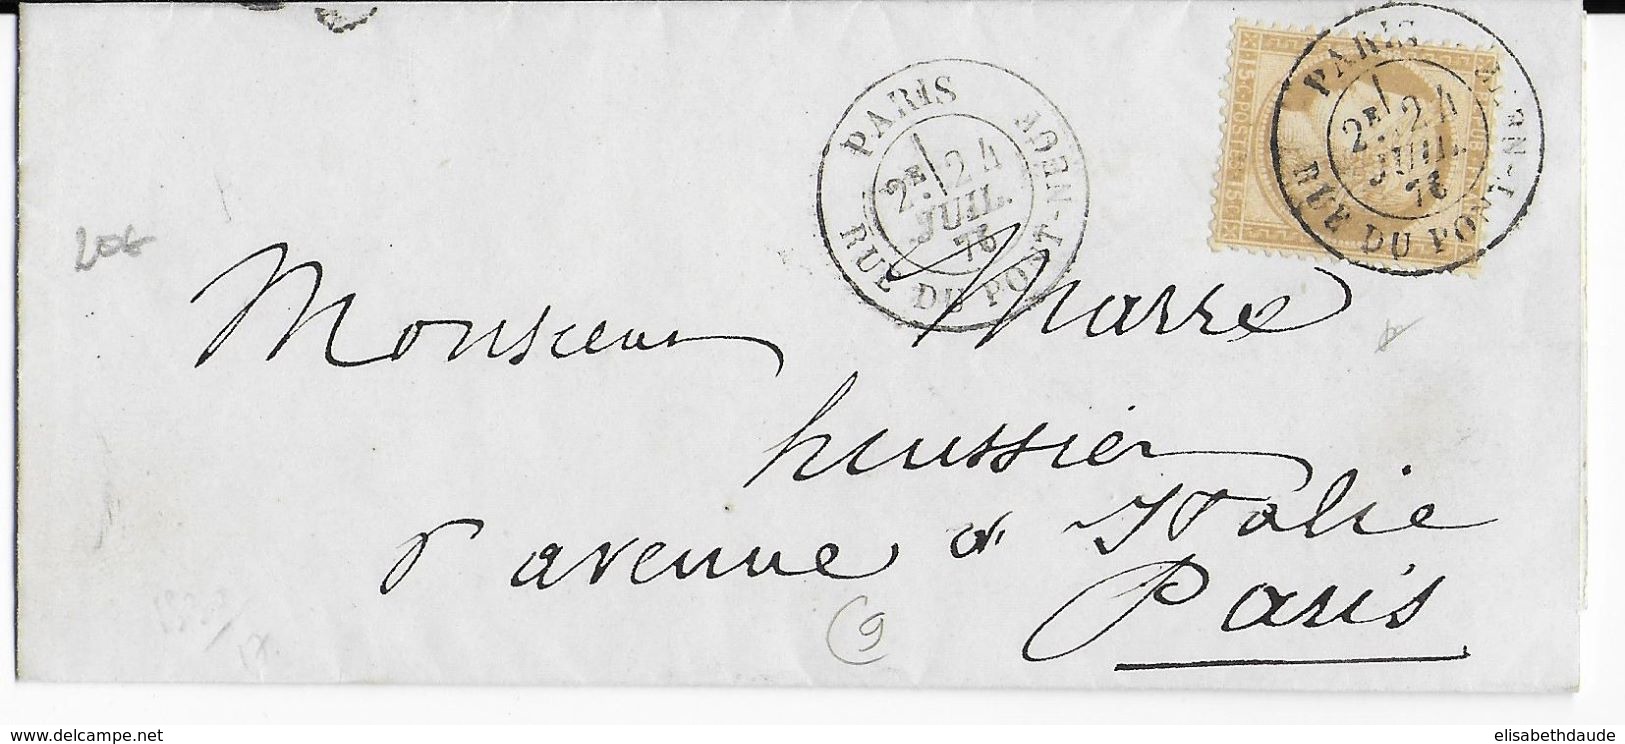 PARIS
2E 24
JUIL.
76
RUE DU PONT-NEUF
15 C. POSTES 15 C
REPUB
PARIS
2E 24
JUIL.
76
RUE DU PONT-NEUF
20€
Monsieur Marre
huissier
5 avenue d'Italie
Paris
9
www.delcampe.net
elisabethdaude